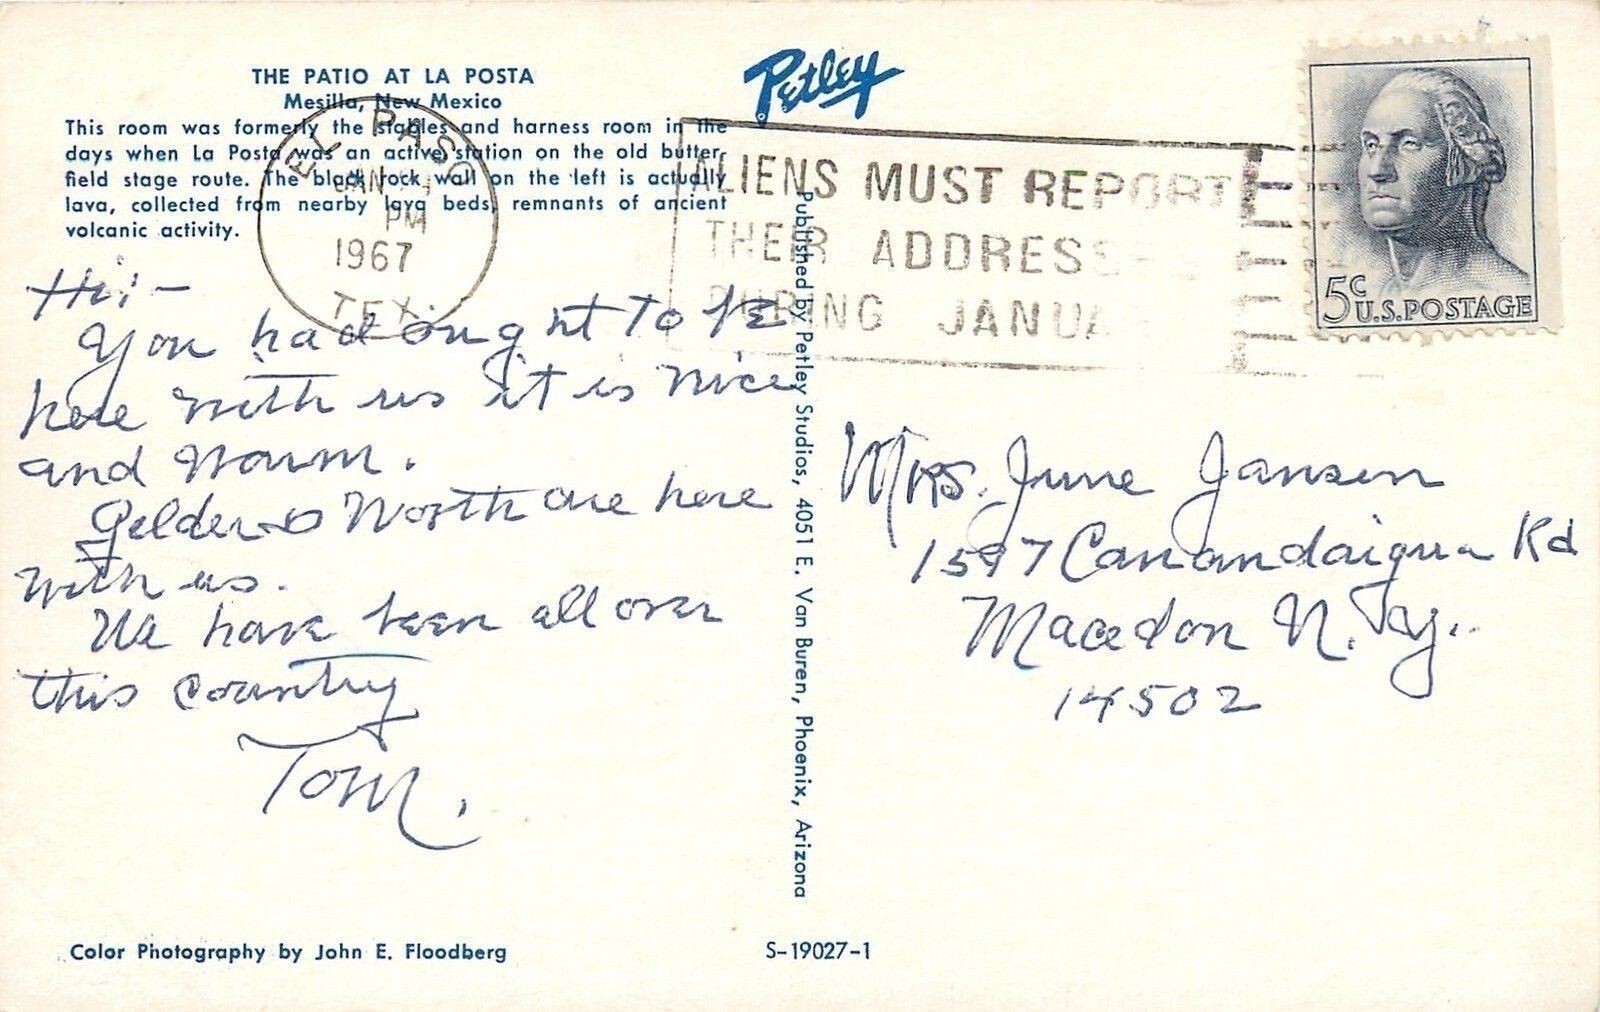 THE PATIO AT LA POSTA
Mesilla, New Mexico
This room was formerly the stables and harness room in the
days when La Posta was an active station on the old butter-
field stage route. The black rock wall on the left is actually
lava, collected from nearby lava beds, remnants of ancient
volcanic activity.
Petley
EL PASO
JAN
PM
1967
TEX.
ALIENS MUST REPORT
THEIR ADDRESSES
DURING JANUA
5c
U.S. POSTAGE
Hi! -
You had ought to be
here with us it is nice
and warm.
Gelder & Worth are here
with us.
We have been all over
this country
Tom.
Published by Petley Studios, 4051 E. Van Buren, Phoenix, Arizona
Mrs. June Jansen
1597 Canandaigua Rd
Macedon N. Y.
14502
Color Photography by John E. Floodberg
S-19027-1